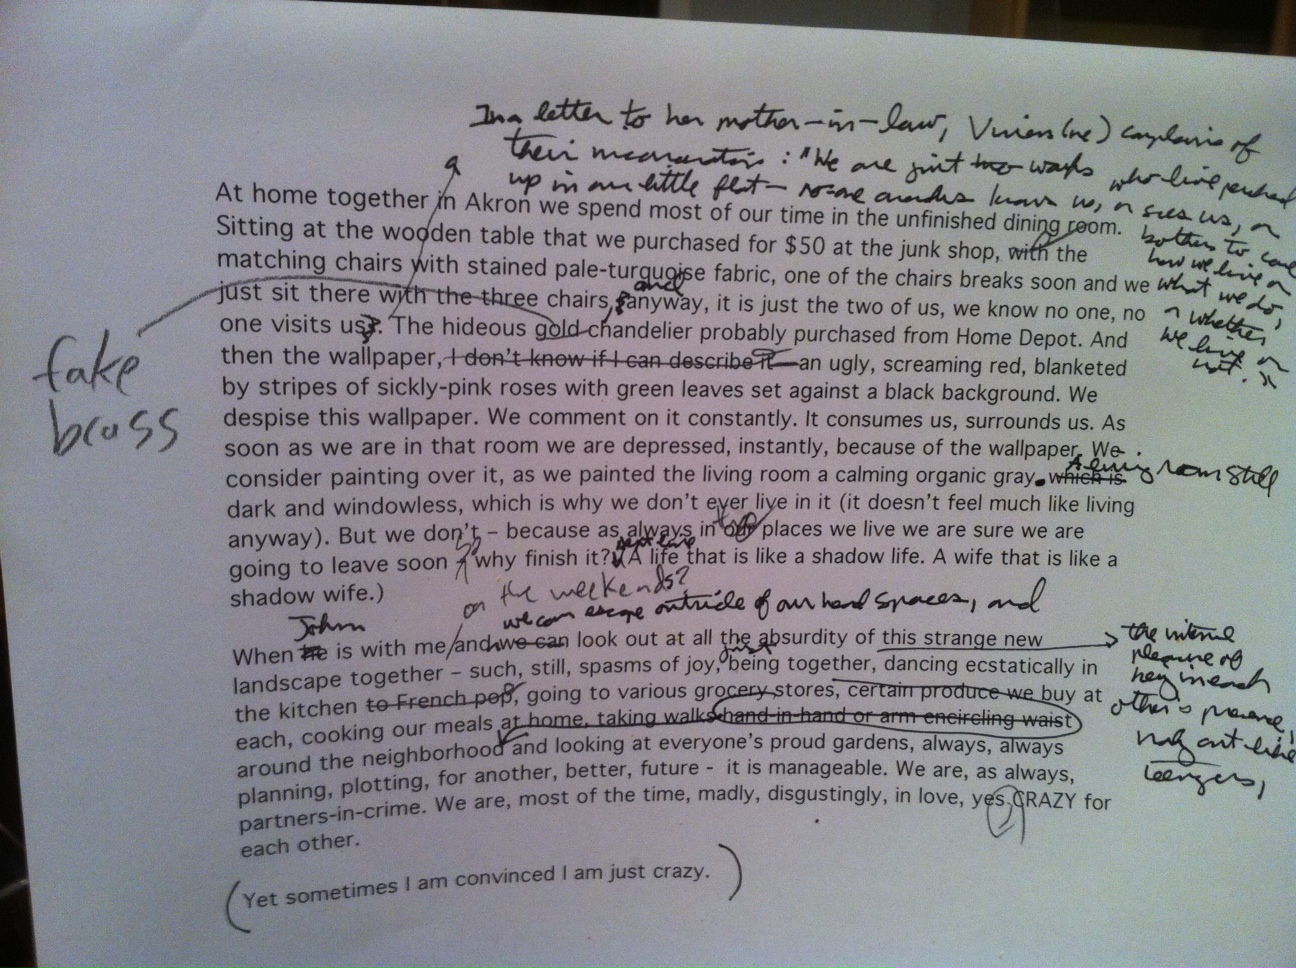 In a letter to her mother-in-law, Vivien(ne) complains of
their : "We are just two waifs who live perched
up in our little flat - no one knows us, or sees us, or
bothers to care
how we live or
what we do,
or whether
we live or
not."
a
At home together in Akron we spend most of our time in the unfinished dining room.
Sitting at the wooden table that we purchased for $50 at the junk shop, with the
matching chairs with stained pale-turquoise fabric, one of the chairs breaks soon and we
and
just sit there with the three chairs, anyway, it is just the two of us, we know no one, no
one visits us. The hideous gold chandelier probably purchased from Home Depot. And
fake
brass
then the wallpaper, I don't know if I can describe it – an ugly, screaming red, blanketed
by stripes of sickly-pink roses with green leaves set against a black background. We
despise this wallpaper. We comment on it constantly. It consumes us, surrounds us. As
soon as we are in that room we are depressed, instantly, because of the wallpaper. We
consider painting over it, as we painted the living room a calming organic gray. which is
A living room still
dark and windowless, which is why we don't ever live in it (it doesn't feel much like living
anyway). But we don't – because as always in our places we live we are sure we are
the
going to leave soon – why finish it? (A life that is like a shadow life. A wife that is like a
so
shadow wife.)
on the weekends?
we can escape outside of our head spaces, and
John
When he is with me and we can look out at all the absurdity of this strange new
just
landscape together – such, still, spasms of joy, being together, dancing ecstatically in
the kitchen to French pop, going to various grocery stores, certain produce we buy at
each, cooking our meals at home, taking walks hand-in-hand or arm encircling waist
around the neighborhood and looking at everyone's proud gardens, always, always
planning, plotting, for another, better, future - it is manageable. We are, as always,
partners-in-crime. We are, most of the time, madly, disgustingly, in love, yes, CRAZY for
each other.
the internal
pleasure of
being in each
other's presence,
like
teenagers,
(Yet sometimes I am convinced I am just crazy.)